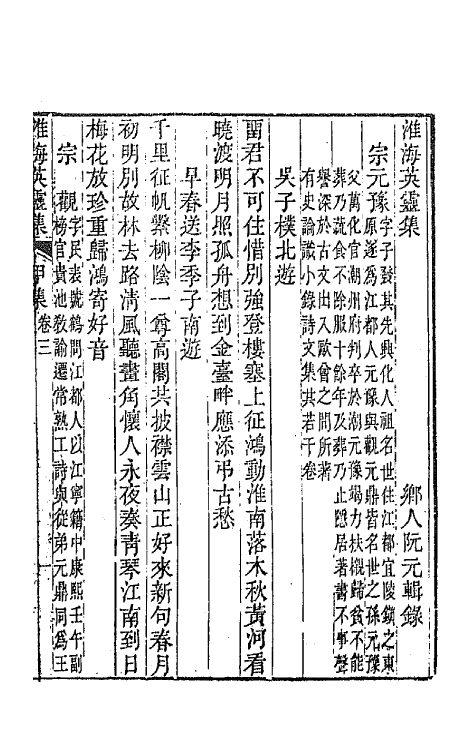 淮海英靈集
鄉人阮元輯錄
宗元豫字子發其先興化人祖名世住江都宜陵鎮之東
原遂爲江都人元豫與觀元鼎皆名世之孫元豫
父萬化官潮州府判卒於潮元豫竭力扶櫬歸貧不能
葬乃蔬食不除服十餘年及葬乃止隱居著書不事聲
譽深於古文出入歐曾之間所著
有史論識小錄詩文集共若干卷
吳子樸北遊
畱君不可住惜別強登樓塞上征鴻動淮南落木秋黃河看
曉渡明月照孤舟想到金臺畔應添弔古愁
早春送李季子南遊
千里征帆繫柳陰一尊高閣共披襟雲山正好來新句春月
初明別故林去路清風聽畫角懷人永夜奏青琴江南到日
梅花放珍重歸鴻寄好音
宗觀字民表號鶴問江都人以江寧籍中康熙壬午副
榜官貴池敎諭遷常熟工詩與從弟元鼎同爲王
淮海英靈集
甲集卷三
一